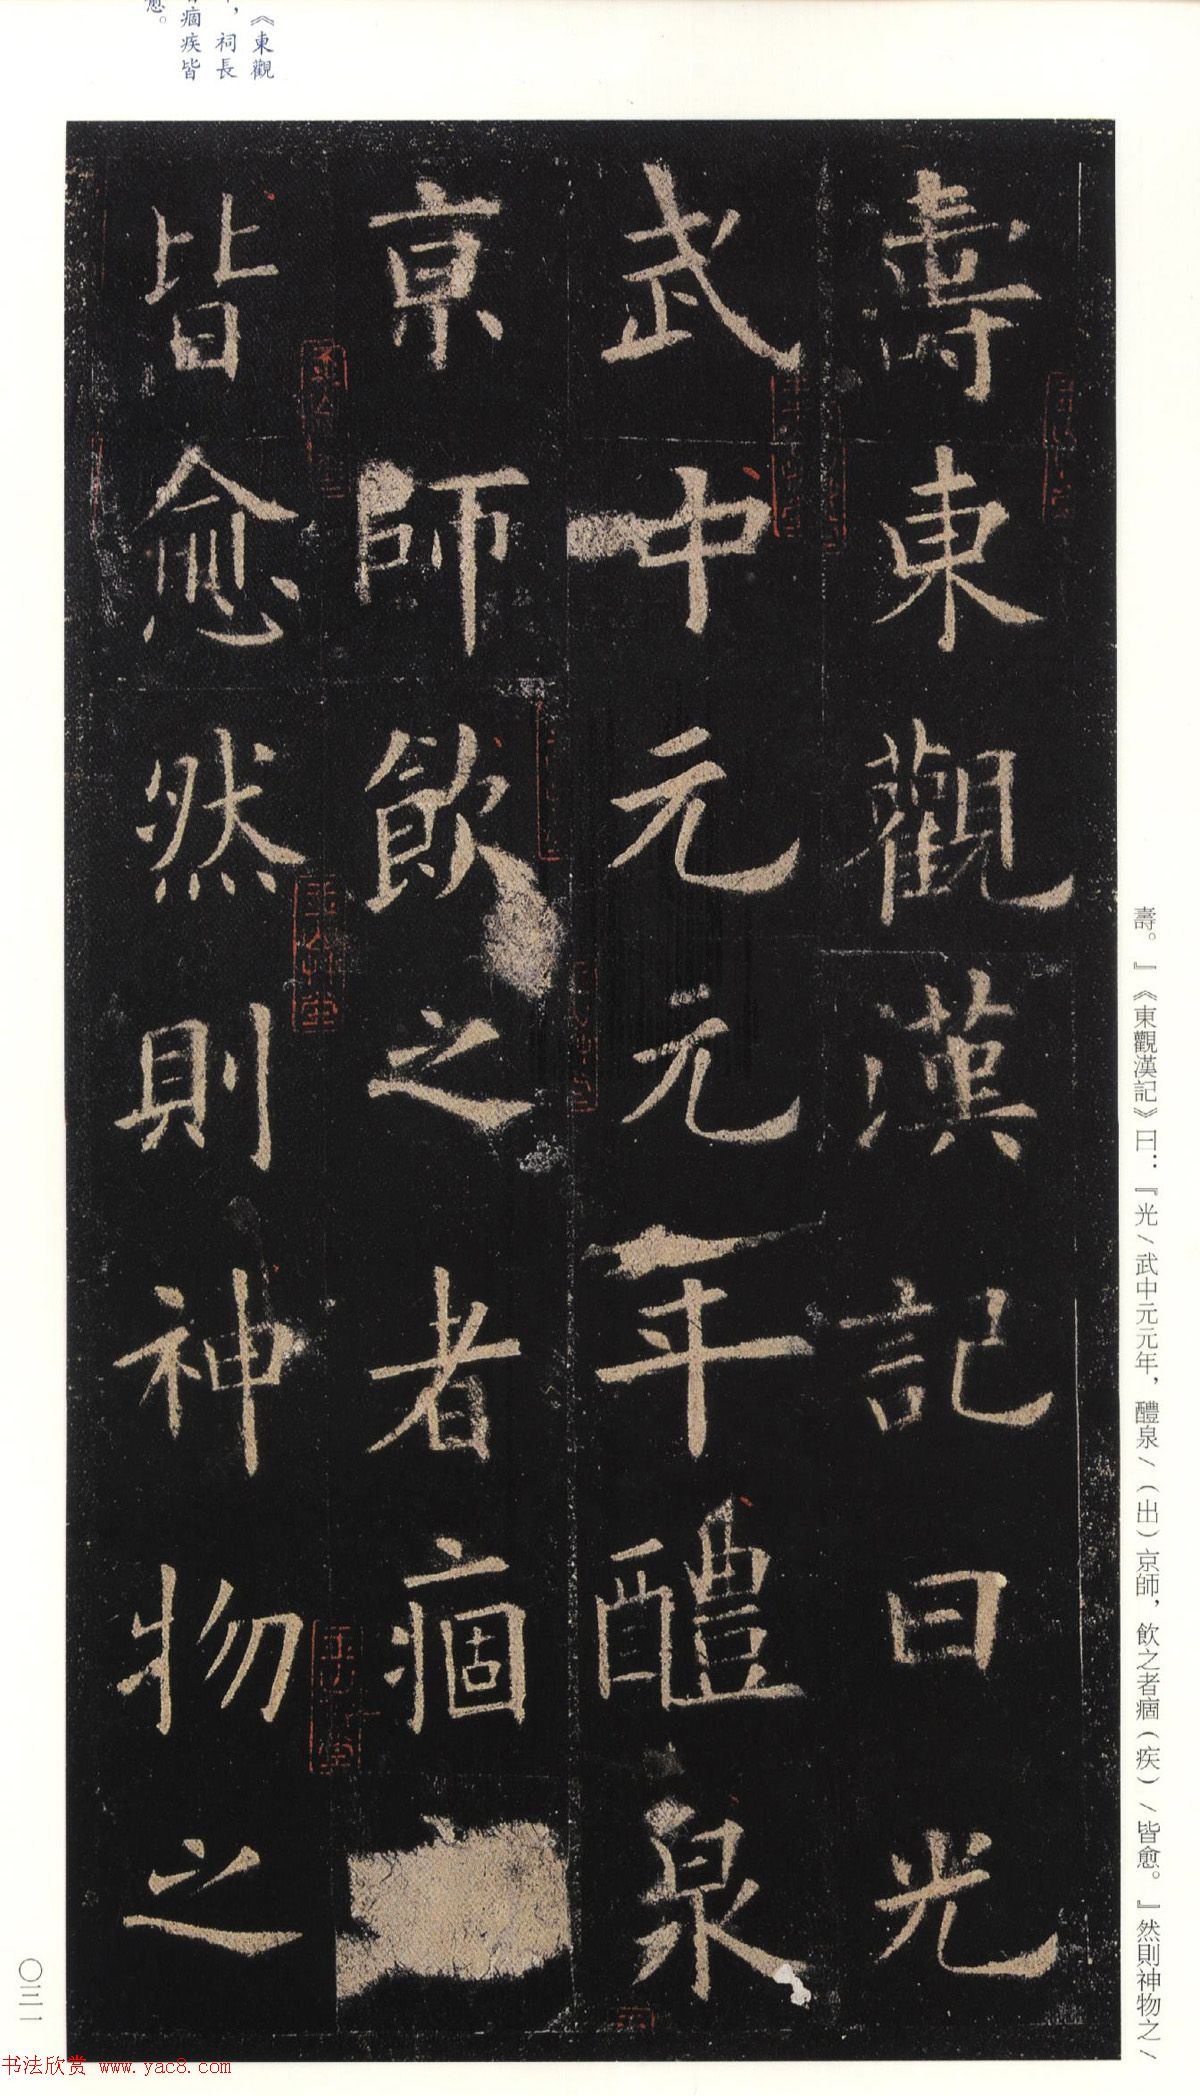 壽東觀漢記曰光
武中元元年醴泉
京師飲之者痼
皆愈然則神物之
壽。』《東觀漢記》曰：『光/武中元元年，醴泉/（出）京師，飲之者痼（疾）/皆愈。』然則神物之/
《東觀
祠長
痼疾皆
愈。
〇三一
书法欣赏 www.yac8.com